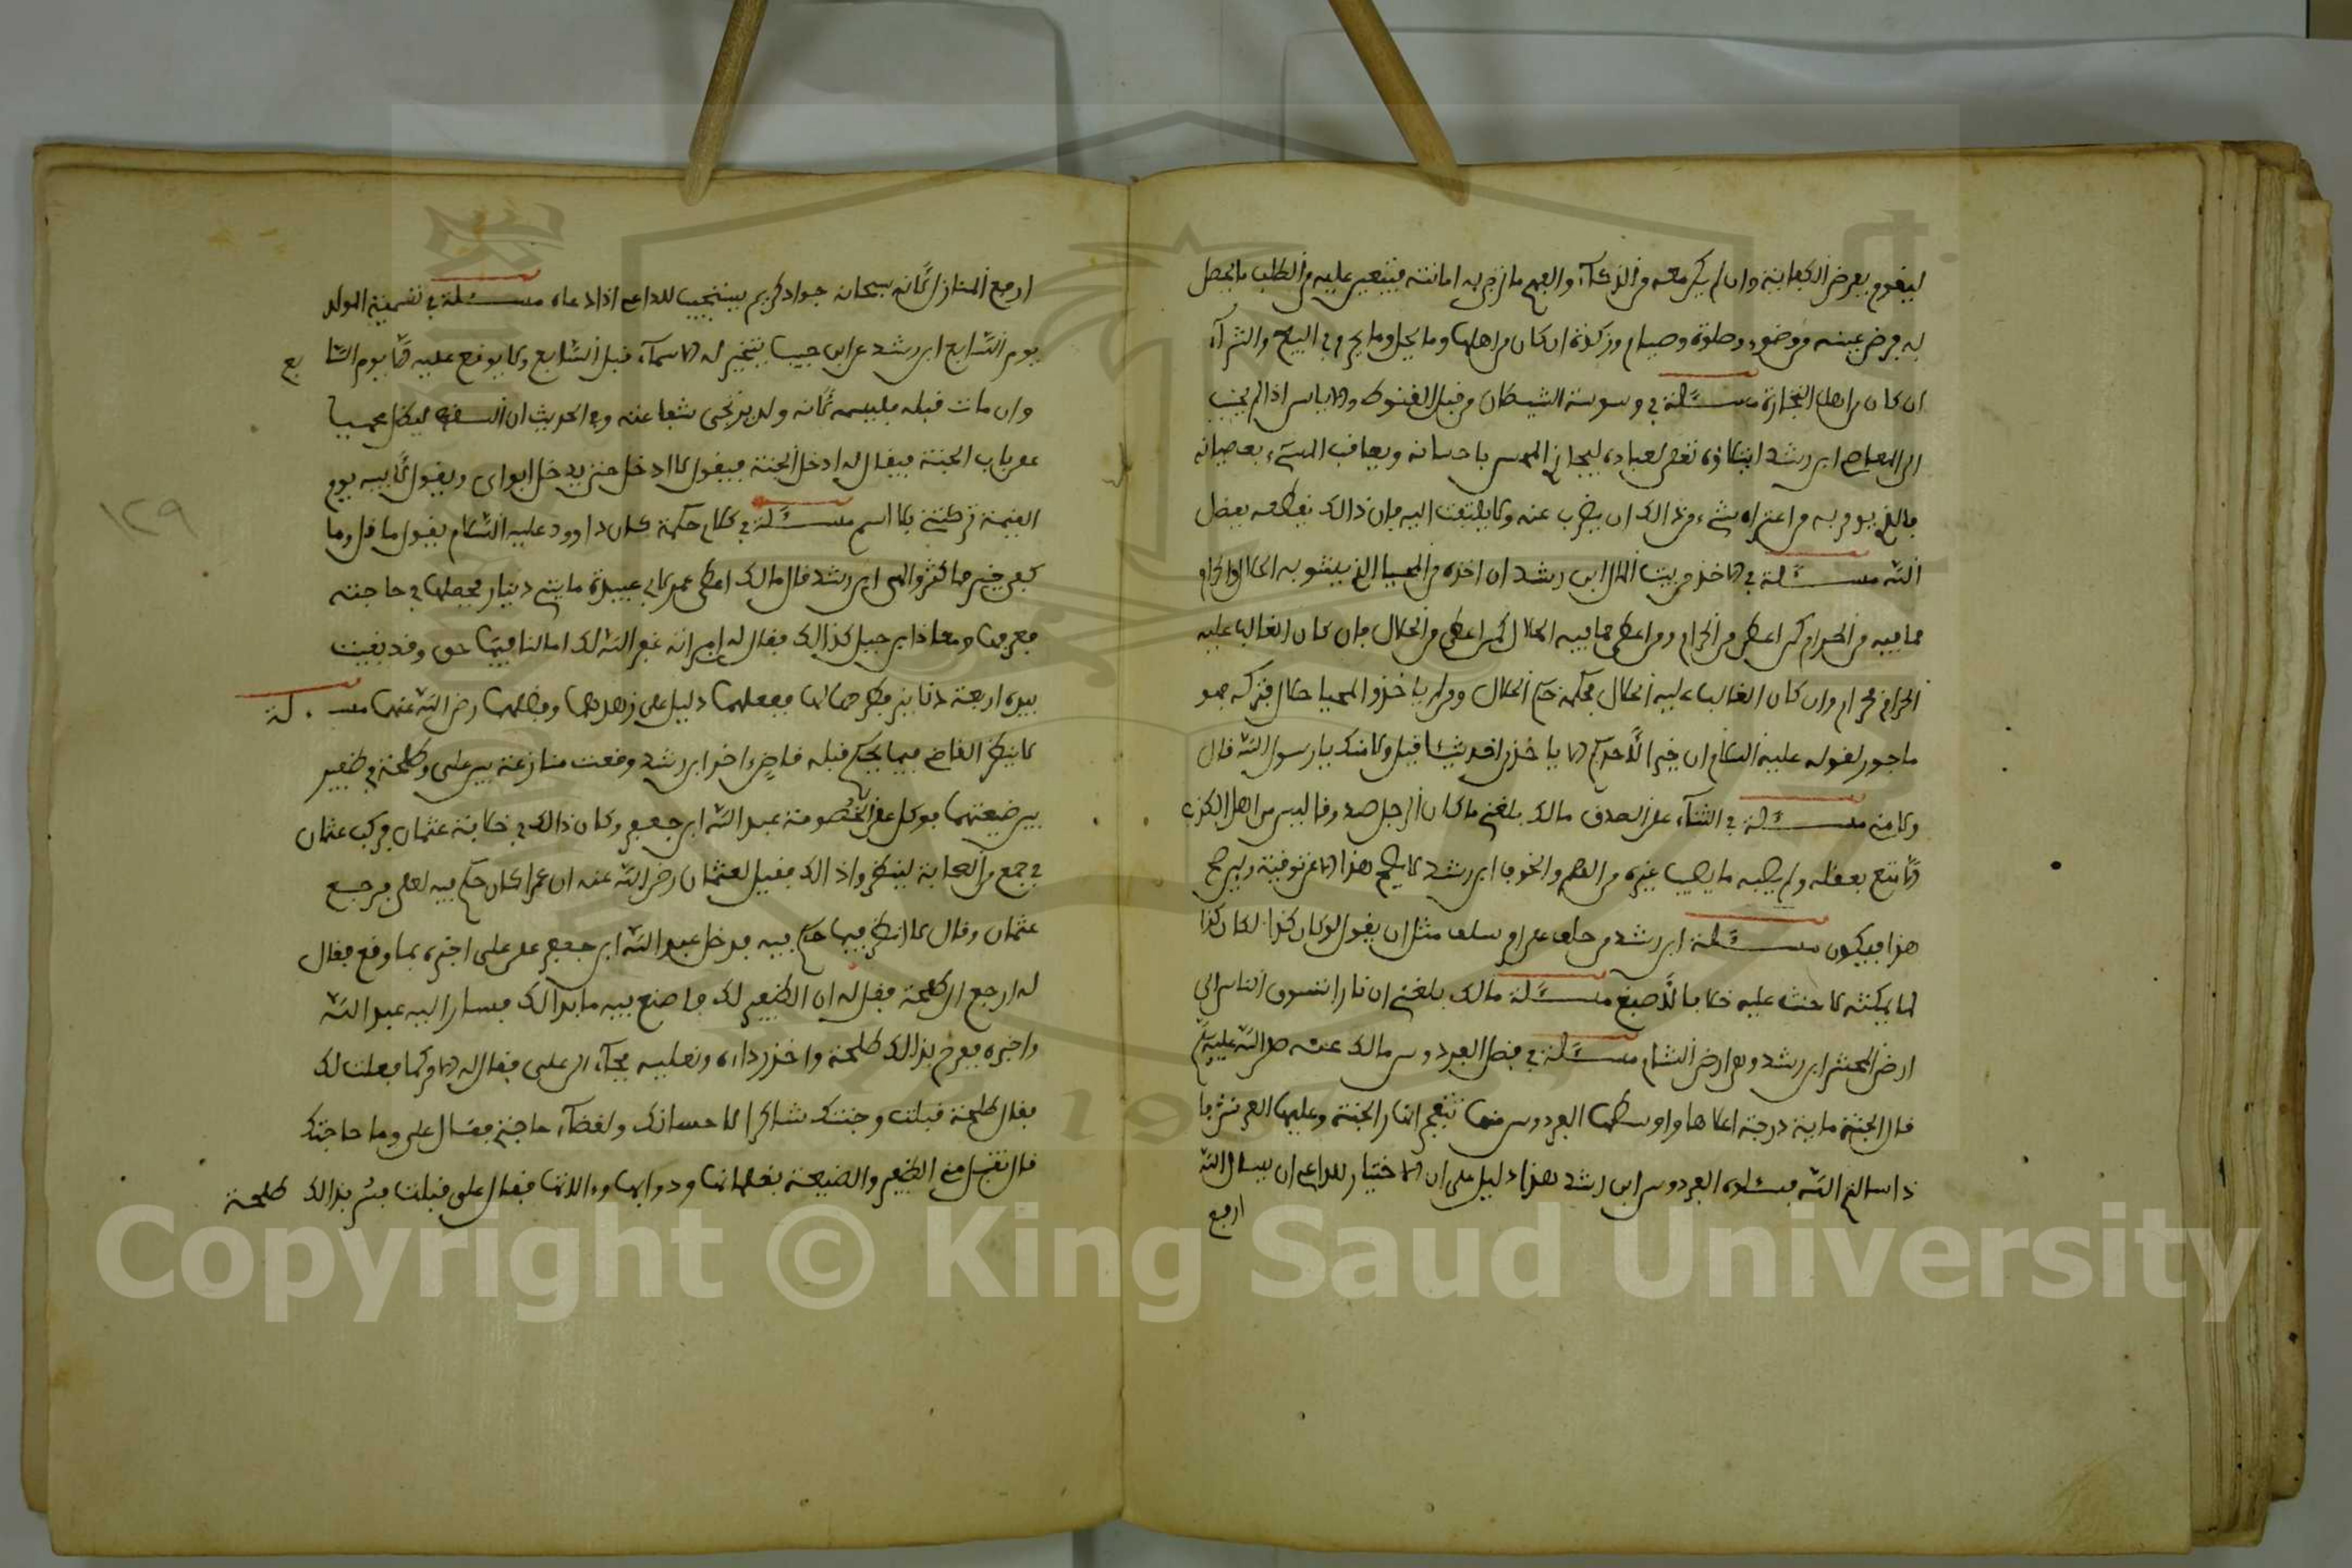 ليقوم بفرض الكفاية وان لم يكن معه من الذكآء والفهم ما تزكوا به امامته فيتعين عليه من الطلب ما يحصل
به فرض عينه من وضوء وصلوة وصيام وزكوة ان كان من اهلها وما يحل وما يحرم في البيع والشرآء
ان كان من اهل التجارة مسئلة في وسوسة الشيطان من قبل القنوط والاياس اذا لم يجب
الى المعاصي ابن رشد ابتلاؤه تعلى لعباده ليجازي المحسن باحسانه ويعاقب المسيء بعصيانه
فالذي يومر به من اعتراه شيء من ذالك ان يضرب عنه ولا يلتفت اليه فان ذالك يقطعه بفضل
الله مسئلة في الاخذ من بيت المال ابن رشد ان اخذه من المجبا الذي يشوبه الحلال والحرام
فما فيه من الحرام كمن اعطي من الحرام ومن اعطي مما فيه الحلال كمن اعطي من الحلال فان كان الغالب عليه
الحرام فحرام وان كان الغالب عليه الحلال فحكمه حكم الحلال ومن لم ياخذ والمجبا حلال فتركه فهو
ماجور لقوله عليه السلام ان خيرا لأحدكم الا ياخذ من احد شيئا قيل ولا منك يا رسول الله قال
ولا مني مسئلة في الثنآء على الصدق مالك بلغني ما كان الرجل صدوقا ليس من اهل الكذب
الا متع بعقله ولم يصبه ما يصيب غيره من الهرم والخرف ابن رشد لا يصح هذا الا عن توقيف ويرجع
هذا فيكون مسئلة ابن رشد من حلف على امر سلف مثل ان يقول لو كان كذا لكان كذا
لما يمكنه لا حنث عليه خلافا لأصبغ مسئلة مالك بلغني ان نارا تسوق الناس الى
ارض المحشر ابن رشد وهي ارض الشام مسئلة في فضل الفردوس مالك عنه صلى الله عليه وسلم
قال الجنة ماية درجة اعلاها واوسطها الفردوس منها تتفجر انهار الجنة وعليها العرش فا
ذا سالتم الله فسئلوه الفردوس ابن رشد هذا دليل على ان الاختيار للداعي ان يسال الله
ارفع
ارفع المنازل لأنه سبحانه جواد كريم يستجيب للداعي اذا دعاه مسئلة في تسمية المولد
يوم السابع ابن رشد عن ابن حبيب تتخير له الاسمآء قبل السابع ولا يوقع عليه الا يوم السا بع
وان مات قبله فليسمه لأنه ولد ترتجى شفاعته وفي الحديث ان السقط ليظل محبنطيا
على باب الجنة فيقال له ادخل الجنة فيقول لا ادخل حتى يدخل ابواي ويقول لأبيه يوم
القيمة تركتني بلا اسم مسئلة في كلام حكمة كان داوود عليه السلام يقول ما قل وما
كفى خير مما كثر والهى ابن رشد قال مالك اعطى عمر لأبي عبيدة مايتي دينار فجعلها في حاجته
ففرقها ومعاذ ابن جبل كذالك فقال له امراته غفر الله لك اما لنا فيها حق وقد بقيت
بيده اربعة دنانير فطرحها لها ففعلهما دليل على زهدهما وفضلهما رضي الله عنهما مسئلة
لا ينظر القاضي فيما يحكم قبله قاضي اخر ابن رشد وقعت منازعة بين علي وطلحة في ظفير
بين ضيعتهما فوكل علي في الخصومة عبد الله ابن جعفر وكان ذالك في خلافة عثمان فركب عثمان
في جمع من الصحابة لينظروا ذالك فقيل لعثمان رضي الله عنه ان عمر كان حكم فيه لعلي فرجع
عثمان وقال لا انظر فيما حكم فيه فدخل عبد الله ابن جعفر على علي اخبره بما وقع فقال
له ارجع الى طلحة فقل له ان الظفير لك فاصنع فيه ما بدا لك فسار اليه عبد الله
واخبره ففرح بذالك طلحة واخذ رداءه ونعليه فجآء الى علي فقال له الامر كما فعلت لك
فقال طلحة قبلت وجئتك شاكرا لاحسانك ولقضآء حاجتي فقال علي وما حاجتك
قال تقبل مني الظفير والضيعة بغلمانها ودوابها وءالاتها فقال علي قبلت فسر بذالك طلحة
١٢٩
Copyright © King Saud University